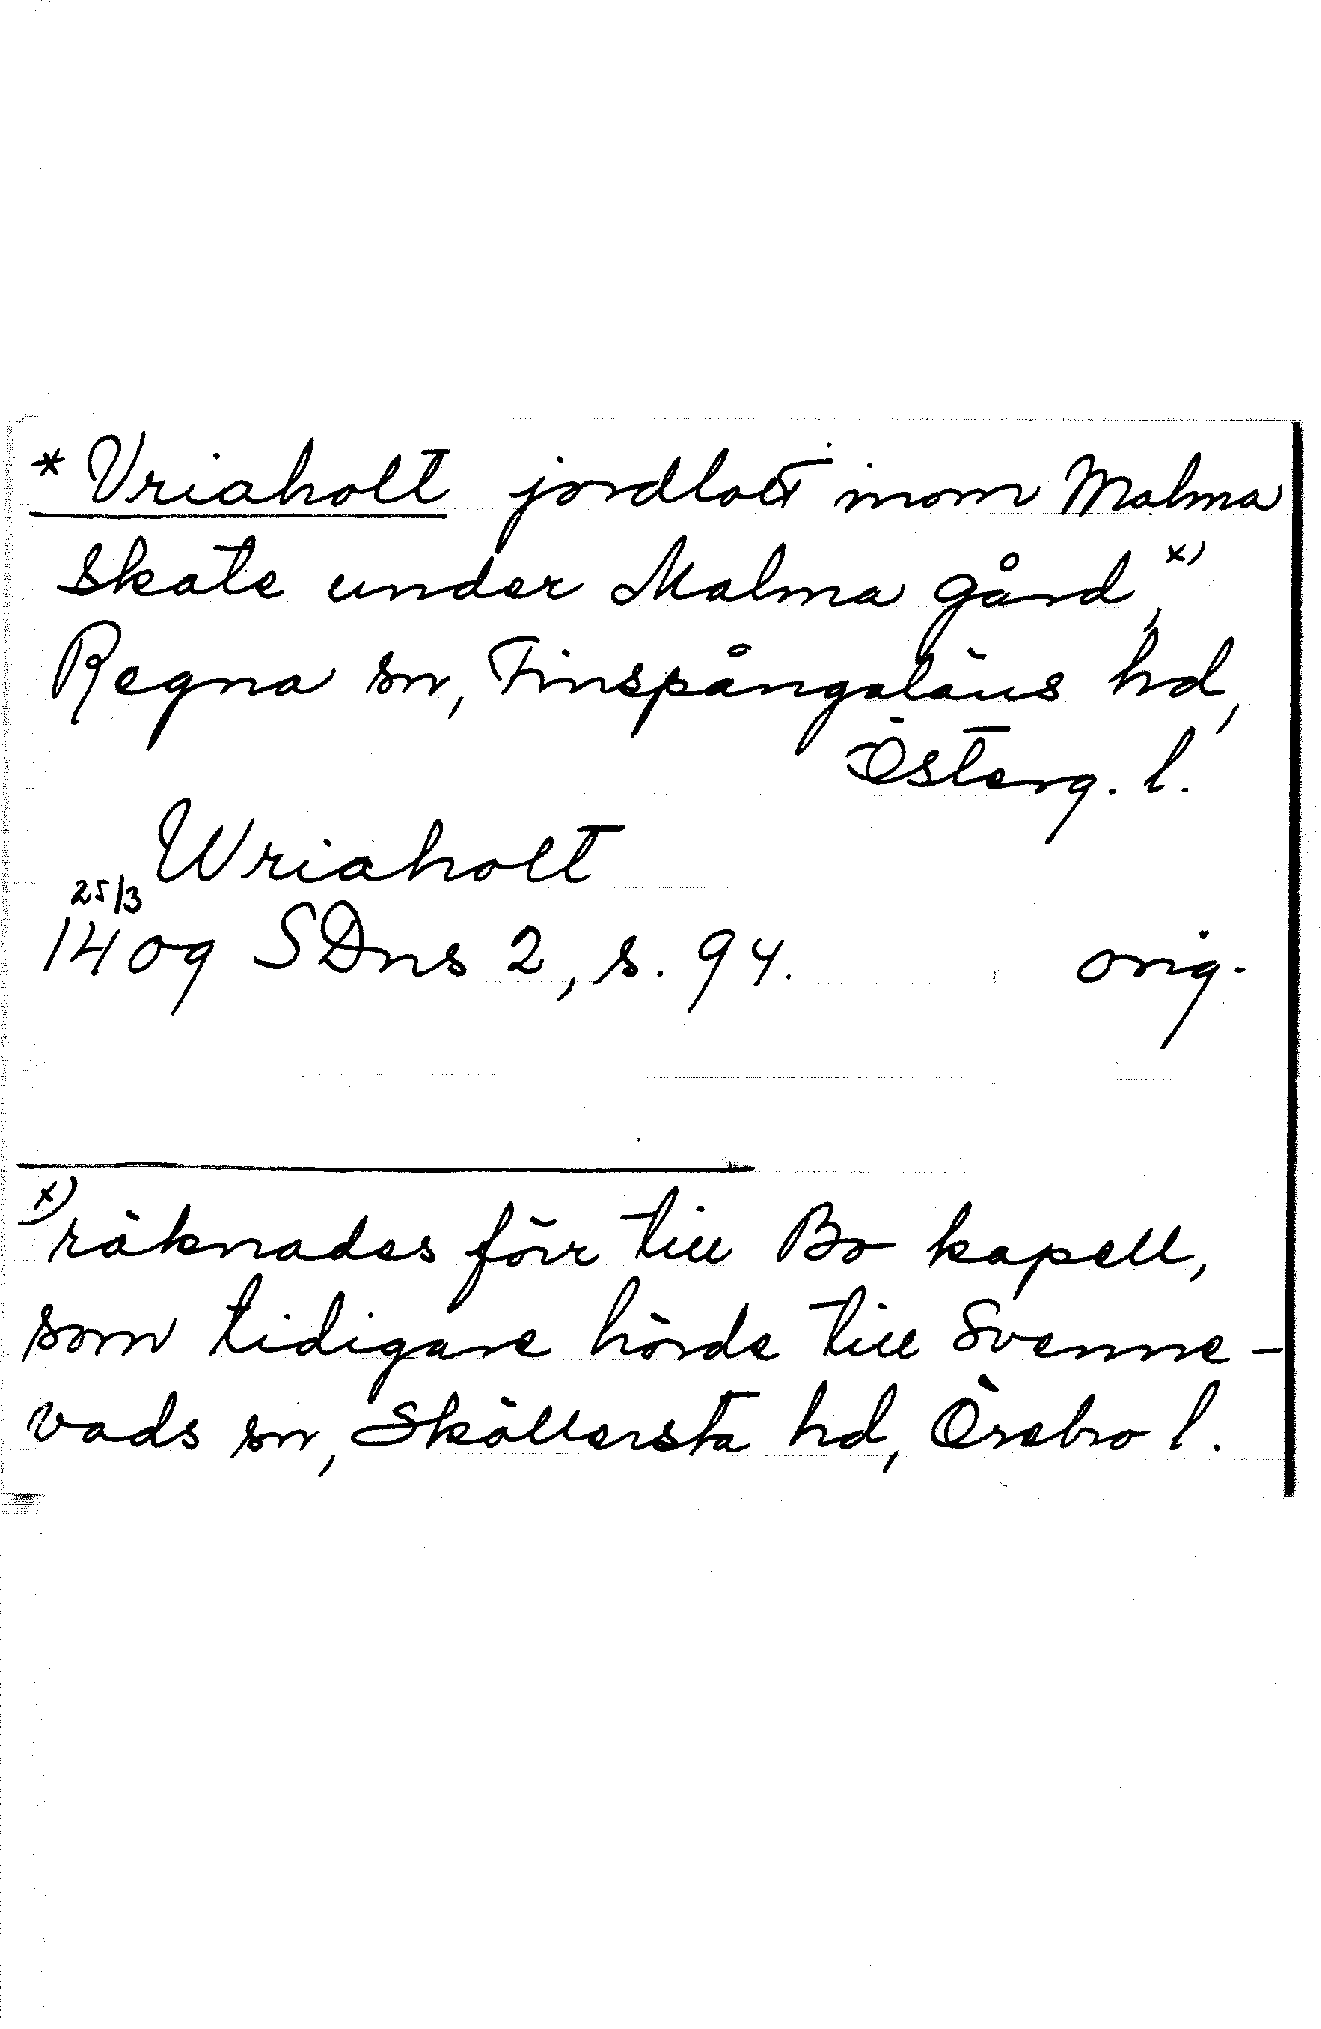 * Vriaholt jordlott inom Malma
skate under Malma gård, x)
Regna sn, Finspångaläns hd,
Österg. l.
Wriaholt
25/3
1409 SDns 2, s. 94. orig.
x) räknades förr till Bo kapell,
som tidigare hörde till Svenne-
vads sn, Sköllersta hd, Örebro l.